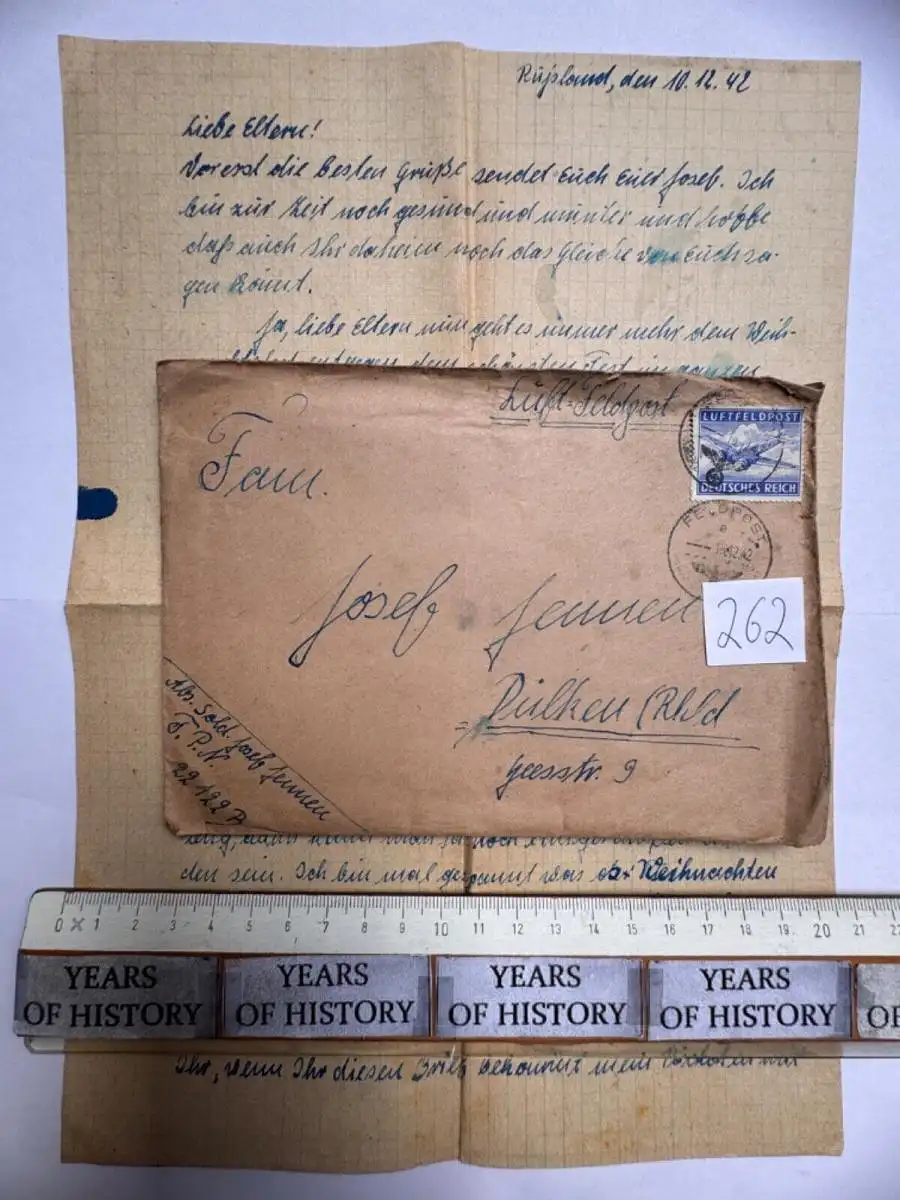 Rußland, den 10.12.42
Liebe Eltern!
Vorerst die besten Grüße sendet Euch Euer Josef. Ich
bin zur Zeit noch gesund und munter und hoffe
daß auch Ihr daheim noch das Gleiche von Euch sa-
gen könnt.
Ja, liebe Eltern nun geht es immer mehr dem Weih-
entgegen, dem schönsten Fest im ganzen
Luft=Feldpost
LUFTFELDPOST
DEUTSCHES REICH
FELDPOST
e
12.42
Fam.
Josef Jennen
262
Dülken (Rhld
Geesstr. 9
Abs. Sold. Josef Jennen
F.P.Nr.
22122 B
noch
den sein. Ich bin mal gespannt was es Weihnachten
0 x 1 2 3 4 5 6 7 8 9 10 11 12 13 14 15 16 17 18 19 20 21 22
YEARS OF HISTORY YEARS OF HISTORY YEARS OF HISTORY YEARS OF HISTORY OF
Ihr, wenn Ihr diesen Brief bekommt mein